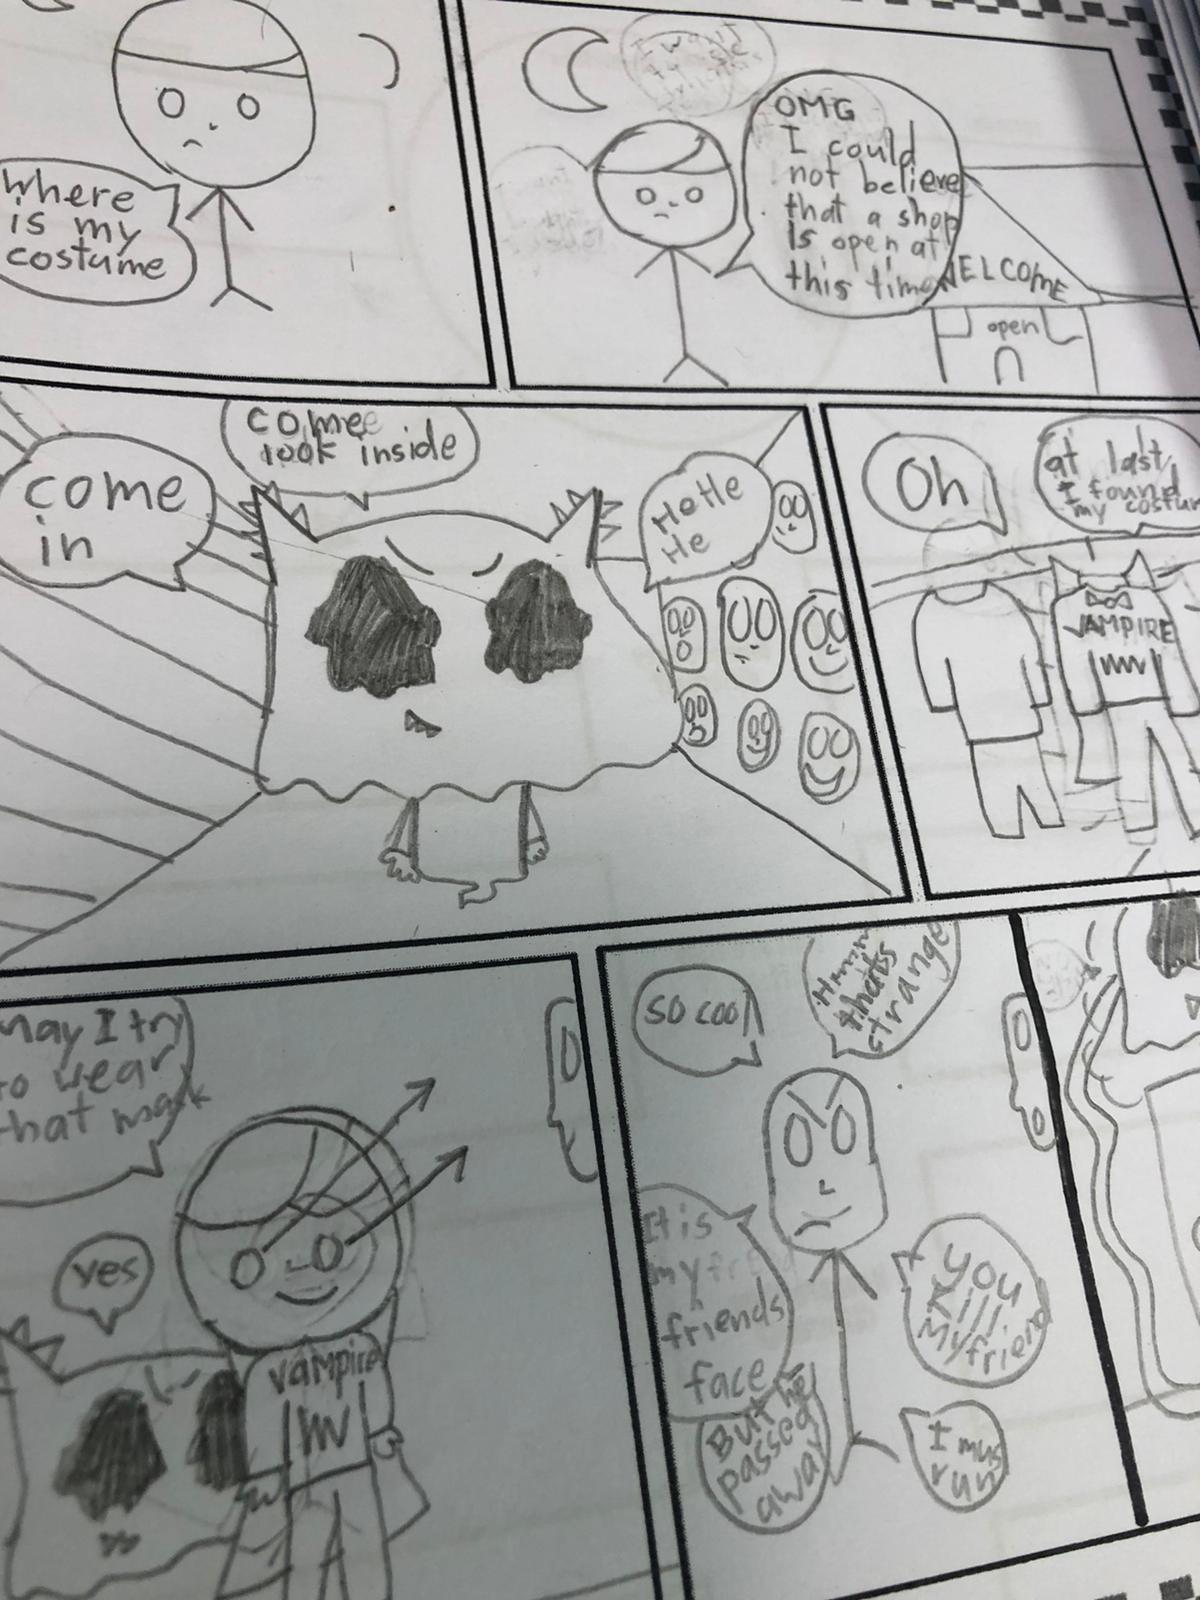 Where
is my
costume
OMG
I could
not believe
that a shop
Is open at
this time
WELCOME
open
come
in
come
look inside
HeHe
He
Oh
at last
I found
my costum
VAMPIRE
May I try
to wear
that mask
yes
vampire
so cool
Hmm
thats
strange
It is
my
friends
face
But he
passed
away
you
Kill
My friend
I mus
run